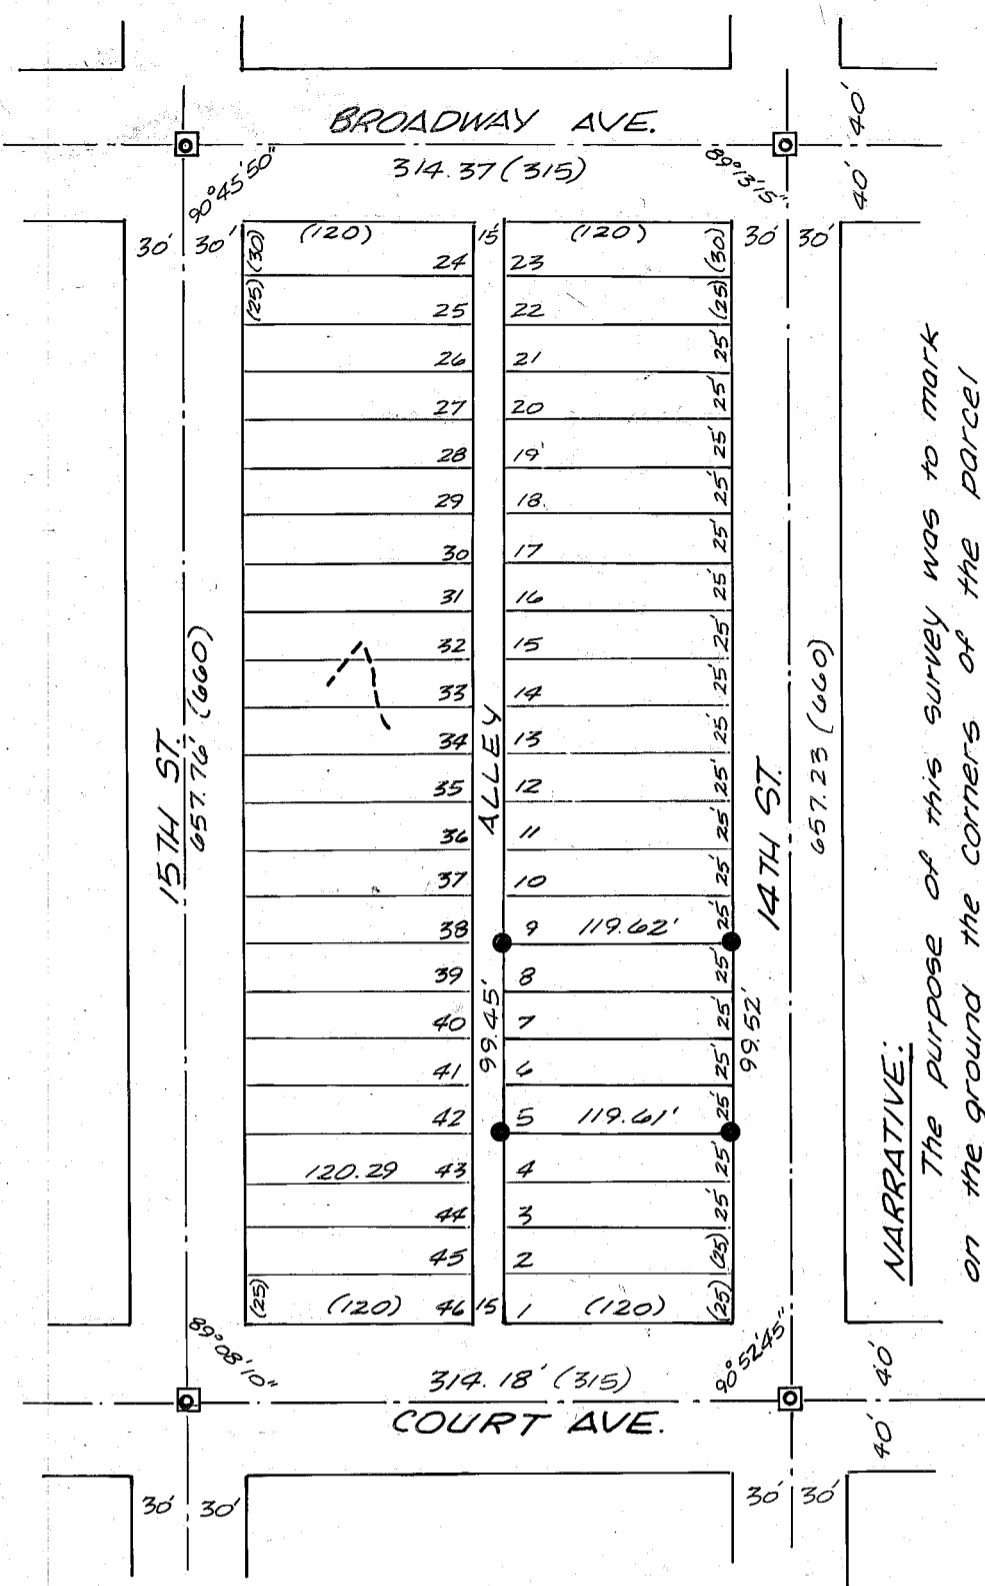 BROADWAY AVE.
314.37 (315)
90°45'50"
89°13'15"
40'
40'
30'
30'
(120)
15'
(120)
30'
30'
(30)
24
23
(30)
(25)
25
22
(25)
26
21
25'
27
20
25'
28
19
25'
29
18
25'
30
17
25'
31
16
25'
32
15
25'
33
14
25'
34
13
25'
35
12
25'
36
11
25'
37
10
25'
38
9
119.62'
25'
39
8
25'
40
7
25'
41
6
25'
42
5
119.61'
25'
120.29
43
4
25'
44
3
25'
45
2
(25)
(25)
(120)
46
15
1
(120)
(25)
ALLEY
99.45'
99.52'
15TH ST.
657.76' (660)
14TH ST.
657.23 (660)
89°08'10"
90°52'45"
314.18' (315)
COURT AVE.
40'
40'
30'
30'
30'
30'
NARRATIVE:
The purpose of this survey was to mark
on the ground the corners of the parcel